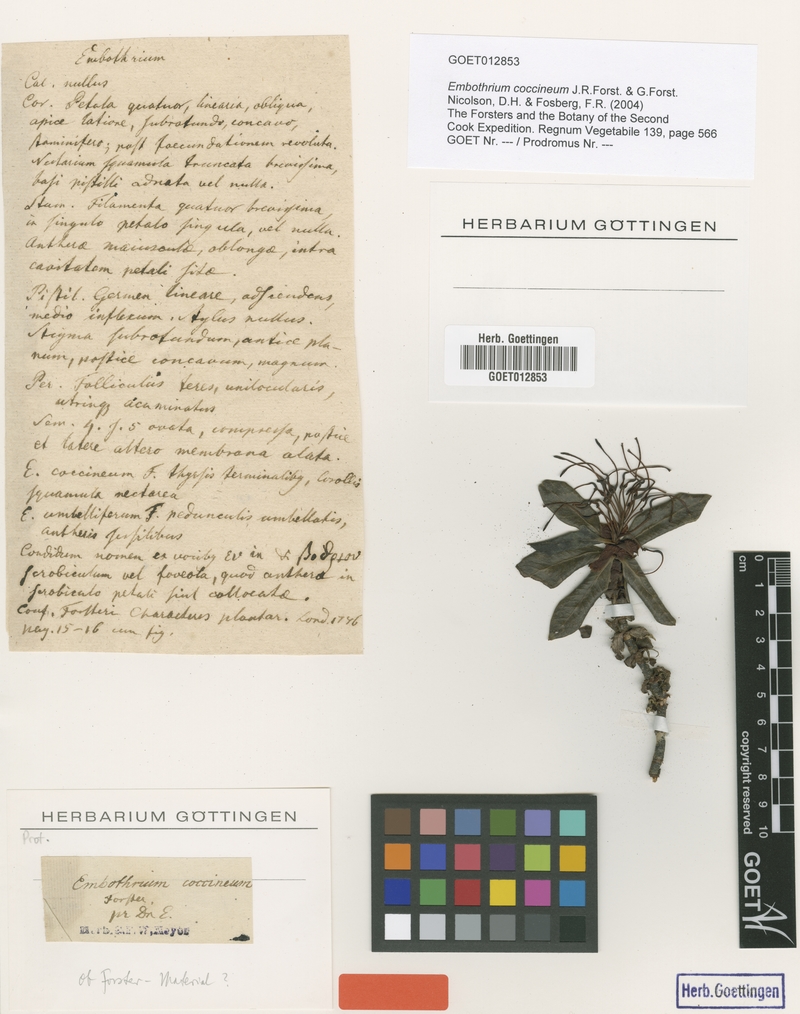 Embothrium
Cal. nullus
Cor. Petala quatuor, linearia, obliqua,
apice latiore, subrotundo, concavo,
staminifero; post foecundationem revoluta.
Nectarium squamula truncata brevissima,
basi pistilli adnata vel nulla.
Stam. Filamenta quatuor brevissima,
in singulo petalo singula, vel nulla.
Antheræ maiusculæ, oblongæ, intra
cavitatem petali sitæ.
Pistil. Germen lineare, adscendens,
medio inflexum. Stylus nullus.
Stigma subrotundum, antice pla-
num, postice concavum, magnum.
Per. Folliculus teres, unilocularis,
utrinq; acuminatus
Sem. 4. s. 5 ovata, compressa, postice
et latere altero membrana alata.
E. coccineum F. thyrsis terminalibq, Corollis
squamula nectarea
E. umbelliferum F. pedunculis umbellatis,
antheris sessilibus
Conditum nomen ex vocibq εν in & βοθριον
scrobiculum vel foveola, quod antheræ in
scrobiculo petali sint collocatæ.
Conf. Forsteri Characteres plantar. Lond. 1776
pag. 15-16 cum fig.
GOET012853
Embothrium coccineum J.R.Forst. & G.Forst.
Nicolson, D.H. & Fosberg, F.R. (2004)
The Forsters and the Botany of the Second
Cook Expedition. Regnum Vegetabile 139, page 566
GOET Nr. --- / Prodromus Nr. ---
HERBARIUM GÖTTINGEN
Herb. Goettingen
GOET012853
cm
0 1 2 3 4 5 6 7 8 9 10
copyright reserved
GOET
HERBARIUM GÖTTINGEN
Prot.
Embothrium coccineum
Forster.
pr Dr. E.
Herb. E.F.W. Meyer
ob Forster-Material?
Herb. Goettingen